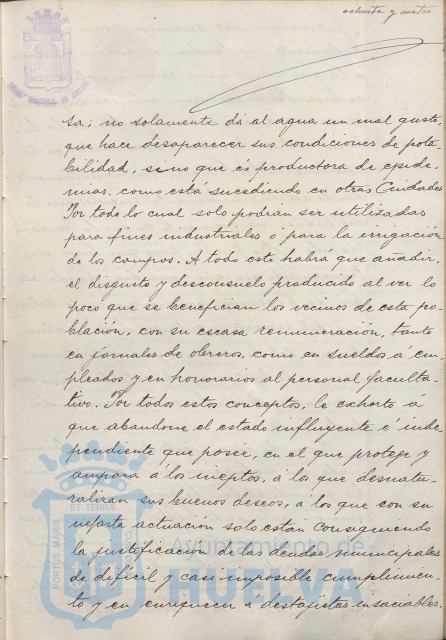 ochenta y siete
sa; no solamente dá al agua un mal gusto,
que hace desaparecer sus condiciones de pota-
bilidad, sino que és productora de epide-
mias, como está sucediendo en otras Ciudades
Por todo lo cual solo podrán ser utilizadas
para fines industriales ó para la irrigación
de los campos. A todo esto habrá que añadir,
el disgusto y desconsuelo producido al ver lo
poco que se benefician los vecinos de esta po-
blación, con su escasa remuneración, tanto
en jornales de obreros, como en sueldos a em-
pleados y en honorarios al personal faculta-
tivo. Por todos estos conceptos, le exhorto á
que abandone el estado influyente é inde
pendiente que posee, en el que protege y
ampara á los ineptos, á los que desnatu-
ralizan sus buenos deseos, á los que con su
nefasta actuacion solo están consiguiendo
la justificación de las deudas municipales
de difícil y casi imposible cumplimien-
to y en enriquecer á destajistas insaciables.
PORTUS MARIS
ET TERRA
Ayuntamiento de
HUELVA